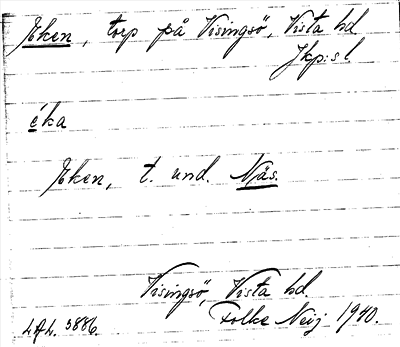 Eken, torp på Visingsö, Vista hd
Jkp:s l
éka
Eken, t. und. Näs.
Visingsö, Vista hd.
Folke Neij 1940.